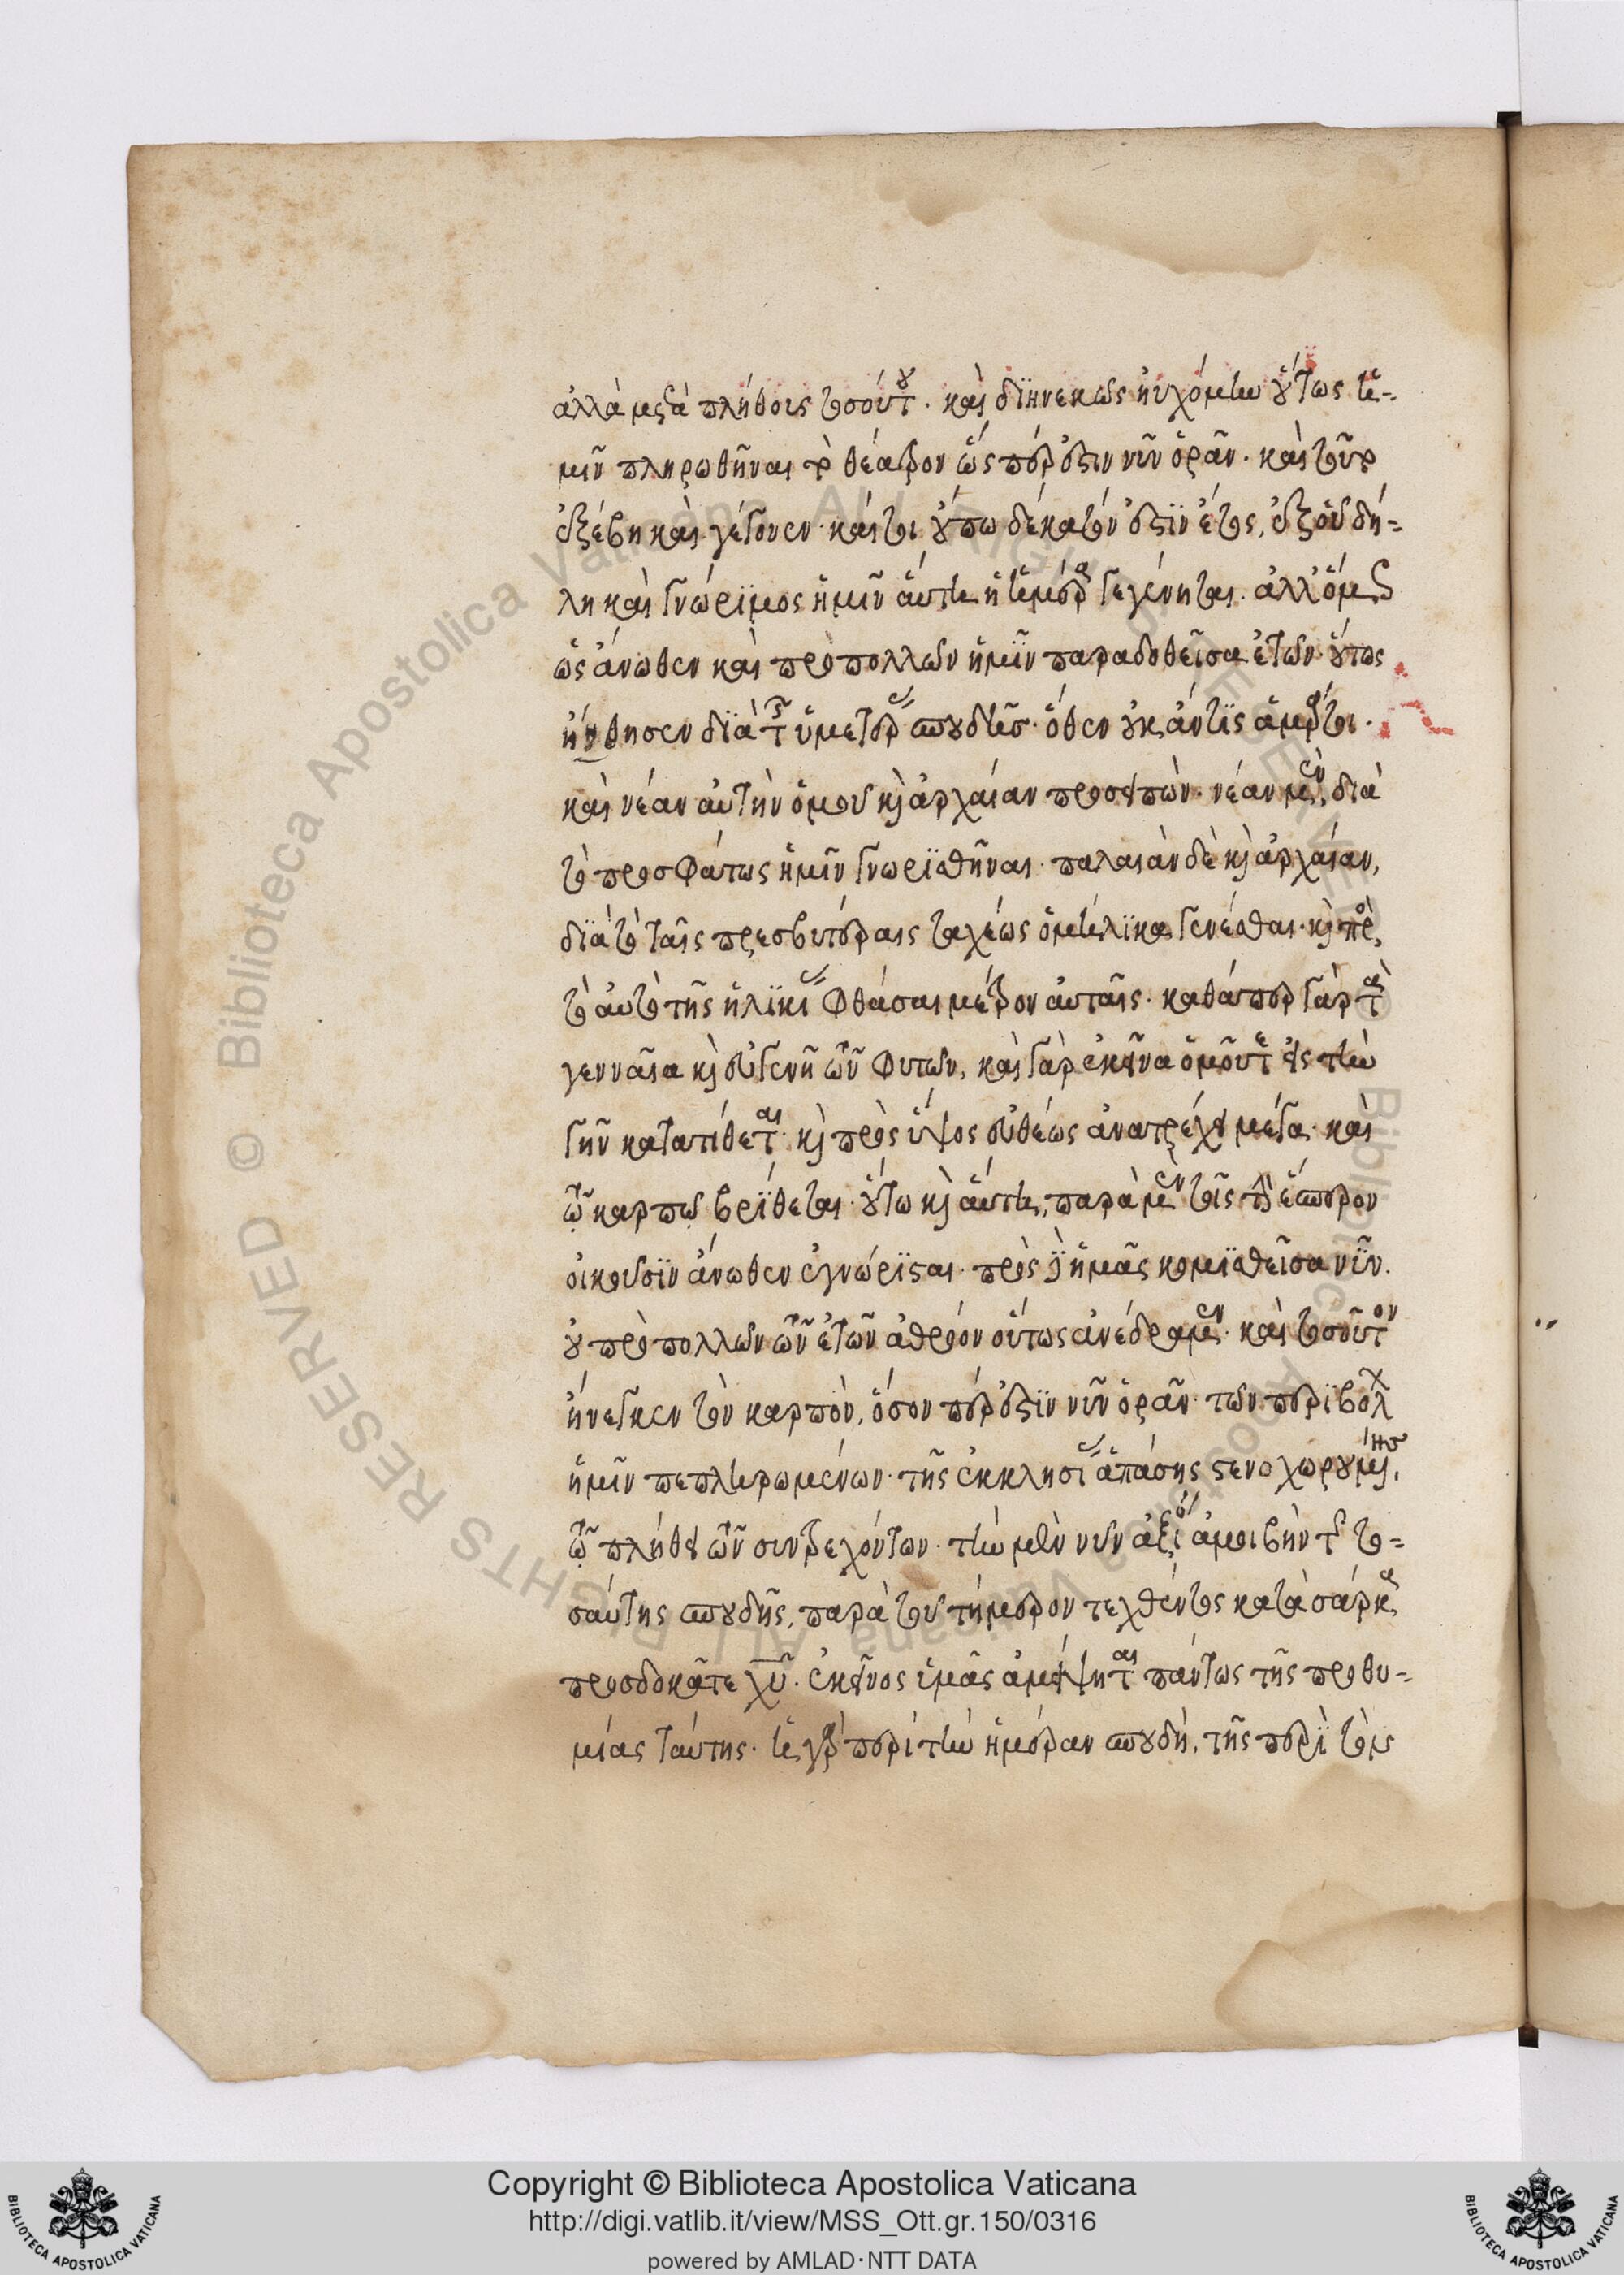 ἀλλὰ μετὰ πλήθους τοσούτου. καὶ διηνεκῶς ηὐχόμην οὕτως ἡ-
μῖν πληρωθῆναι τὸ θέατρον ὥσπερ ἐστιν νῦν ὁρᾶν. καὶ τοῦτο
ἐξέβη καὶ γέγονεν. καίτοι οὔπω δέκατόν ἐστιν ἔτος, ἐξ οὗ δή-
λη καὶ γνώριμος ἡμῖν αὕτη ἡ ἡμέρα γεγένηται. ἀλλ' ὅμως
ὡς ἄνωθεν καὶ πρὸ πολλῶν ἡμῖν παραδοθεῖσα ἐτῶν οὕτως
ἤνθησεν διὰ τῆς ὑμετέρας σπουδῆς. ὅθεν οὐκ ἄν τις ἁμάρτοι.
καὶ νέαν αὐτὴν ὁμοῦ καὶ ἀρχαίαν προσειπών. νέαν μὲν, διὰ
τὸ προσφάτως ἡμῖν γνωρισθῆναι. παλαιὰν δὲ καὶ ἀρχαίαν,
διὰ τὸ ταῖς πρεσβυτέραις ταχέως ὁμήλικα γενέσθαι. καὶ πρὸς
τὸ αὐτὸ τῆς ἡλικίας φθάσαι μέτρον αὐταῖς. καθάπερ γὰρ τὰ
γενναῖα καὶ εὐγενῆ τῶν φυτῶν, καὶ γὰρ ἐκεῖνα ὁμοῦ τε εἰς τὴν
γῆν κατατίθεται. καὶ πρὸς ὕψος εὐθέως ἀνατρέχει μέγα. καὶ
τῷ καρπῷ βρίθεται. οὕτω καὶ αὕτη, παρὰ μὲν τοῖς τὴν ἑσπέραν
οἰκοῦσιν ἄνωθεν ἐγνώρισται. πρὸς δὲ ἡμᾶς κομισθεῖσα νῦν.
οὐ πρὸ πολλῶν τῶν ἐτῶν ἀθρόον οὕτως ἀνέδραμεν. καὶ τοσοῦτον
ἤνεγκεν τὸν καρπὸν, ὅσον πέρ ἐστιν νῦν ὁρᾶν. τῶν περιβόλων
ἡμῖν πεπληρωμένων. τῆς ἐκκλησίας ἁπάσης στενοχωρουμένης,
τῷ πλήθει τῶν συντρεχόντων. τὴν μὲν οὖν ἀξίαν ἀμοιβὴν τῆς το-
σαύτης σπουδῆς, παρὰ τοῦ τήμερον τεχθέντος κατὰ σάρκα
προσδοκᾶτε χυ. ἐκεῖνος ὑμᾶς ἀμείψηται πάντως τῆς προθυ-
μίας ταύτης. ἡ γὰρ περὶ τὴν ἡμέραν σπουδὴ, τῆς περὶ τὸν
Copyright © Biblioteca Apostolica Vaticana
http://digi.vatlib.it/view/MSS_Ott.gr.150/0316
powered by AMLAD·NTT DATA